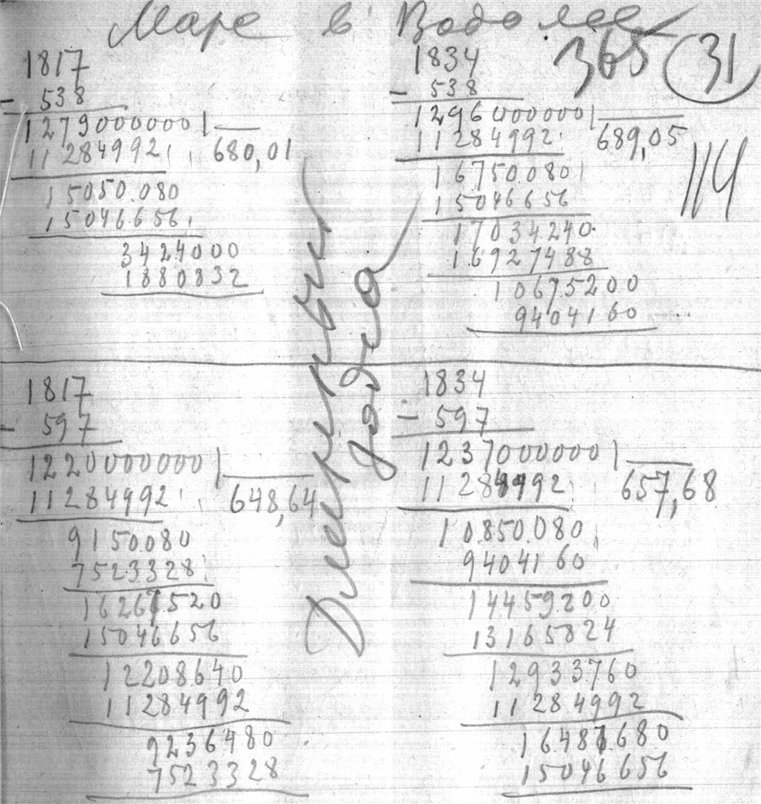 Марс в Водолее
365 31
114
1817
- 538
1279000000
11284992 680,01
15050.080
15046656
3424000
1880832
1834
- 538
1296000000
11284992 689,05
16750.080
15046656
17034240
16927488
10675200
9404160
Длительный
года
1817
- 597
1220000000
11284992 648,64
9150.080
7523328
16267520
15046656
12208640
11284992
9236480
7523328
1834
- 597
1237000000
11284992 657,68
10850.080
9404160
14459200
13165824
12933760
11284992
16487680
15046656